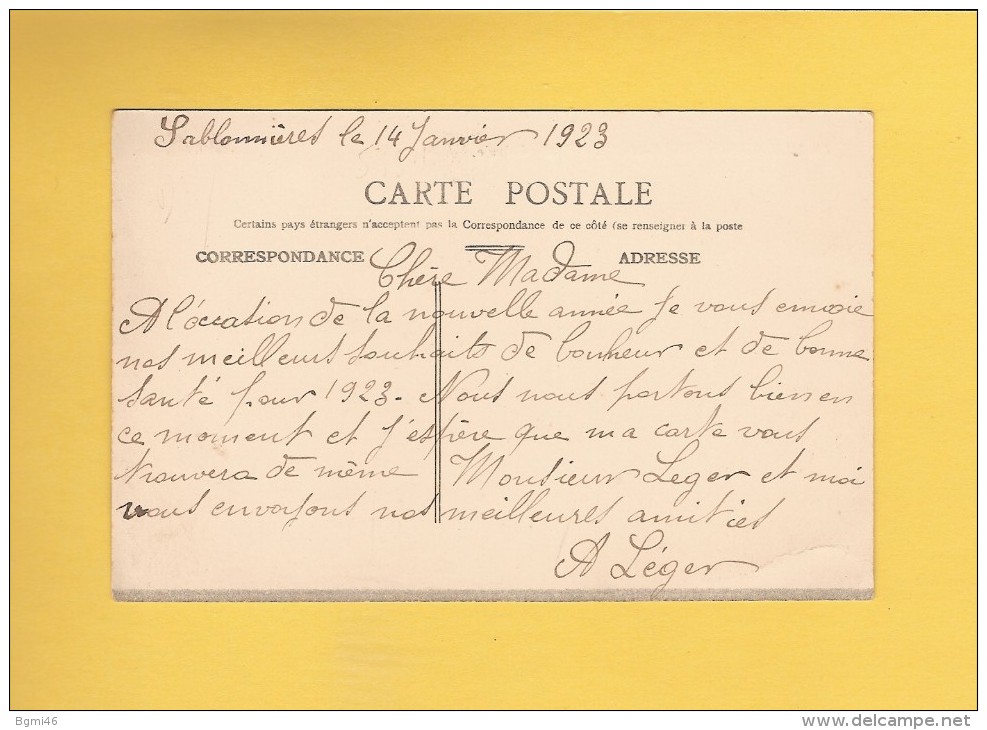 Sablonnières le 14 Janvier 1923
CARTE POSTALE
Certains pays étrangers n'acceptent pas la Correspondance de ce côté (se renseigner à la poste
CORRESPONDANCE
ADRESSE
Chère Madame
A l'occation de la nouvelle année Je vous envoie
nos meilleurs souhaits de bonheur et de bonne
santé pour 1923. Nous nous portons bien en
ce moment et j'espère que ma carte vous
trouvera de même Monsieur Leger et moi
vous envoyons nos meilleures amitiés
A Léger
Bgmi46
www.delcampe.net